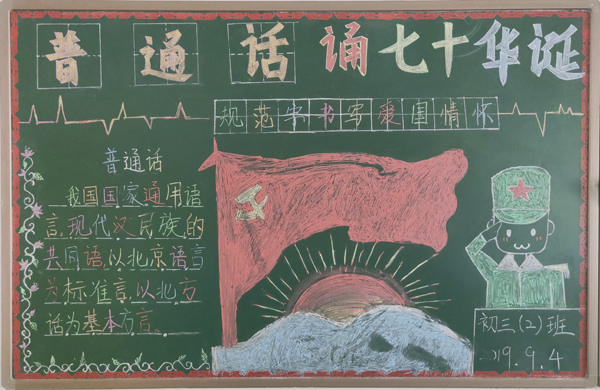 普通话诵七十华诞
规范字书写爱国情怀
普通话
我国国家通用语
言,现代汉民族的
共同语,以北京语言
为标准音,以北方
话为基本方言。
初三(2)班
2019.9.4